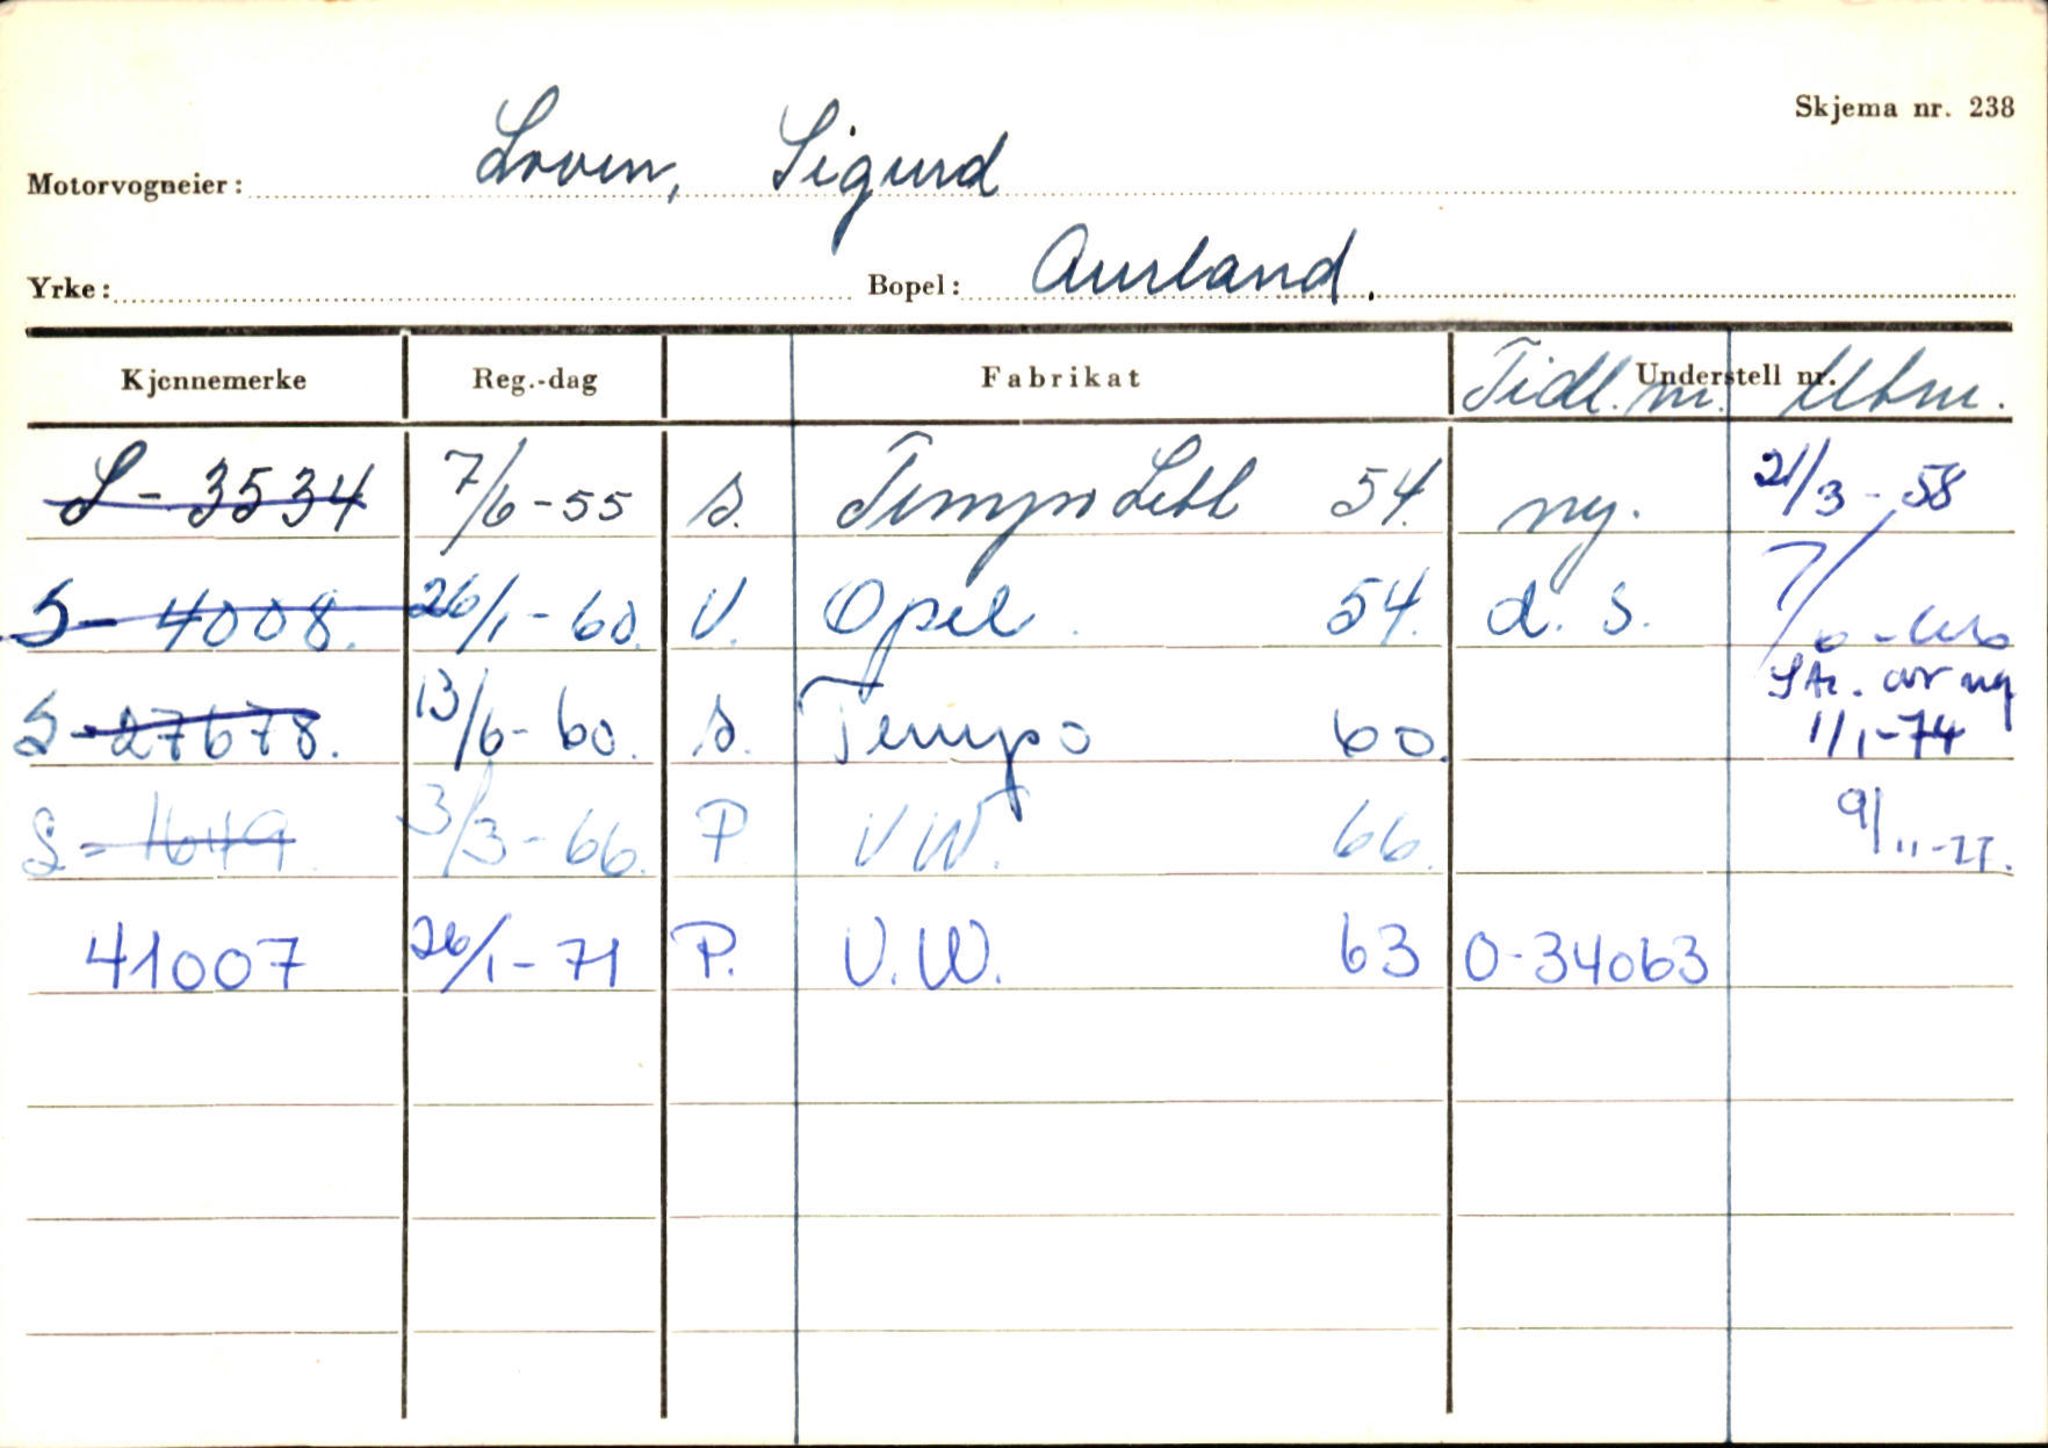 Skjema nr. 238
Motorvogneier: Loven, Sigurd
Yrke: Bopel: Aurland.
Kjennemerke Reg.-dag Fabrikat Tidl. nr. Understell nr. Utm.
S - 3534 7/6 - 55 s. Tempo Letl 54. ny. 21/3 - 58
S - 4008. 26/1 - 60. V. Opel. 54. d. s. 7/6 -
S - 27678. 13/6 - 60. s. Tempo 60. av 11/1-74
S - 1649. 3/3 - 66. P V W. 66. 9/11-
41007 26/1 - 71 P. V. W. 63 O-34063